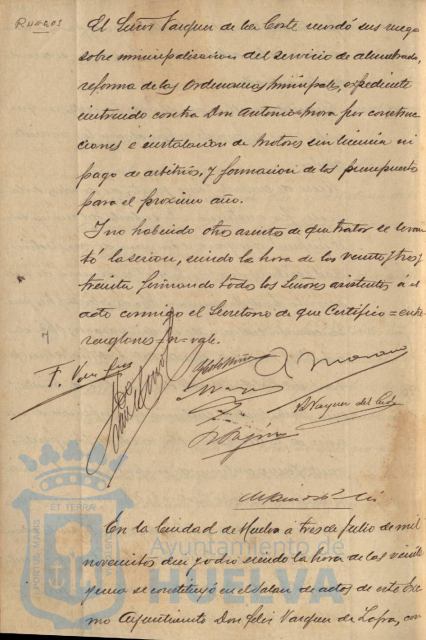 Ruegos
El Señor Vazquez de la Corte recordó sus ruegos
sobre municipalizacion del servicio de alumbrado,
reforma de las Ordenanzas Municipales, expediente
instruido contra Don Antonio Mora por construc-
ciones e instalacion de Motores sin licencia ni
pago de arbitrios, y formacion de los presupuestos
para el proximo año.
Y no habiendo otros asuntos de que tratar se levan-
tó la sesion, siendo la hora de las veinte y tres y
treinta firmando todos los Señores asistentes á el
acto conmigo el Secretario de que Certifico = entre
renglones =
A. Moreno
B. Vazquez del Corte
En la Ciudad de Huelva a tres de Julio de mil
novecientos siendo la hora de las veinte
y una se constituyó en el Salon de actos de este Exc
mo Ayuntamiento Don Felix Vazquez de Zafra, con
ET TERRAE
PORTUS MARIS
CUSTODIA
Ayuntamiento de
HUELVA